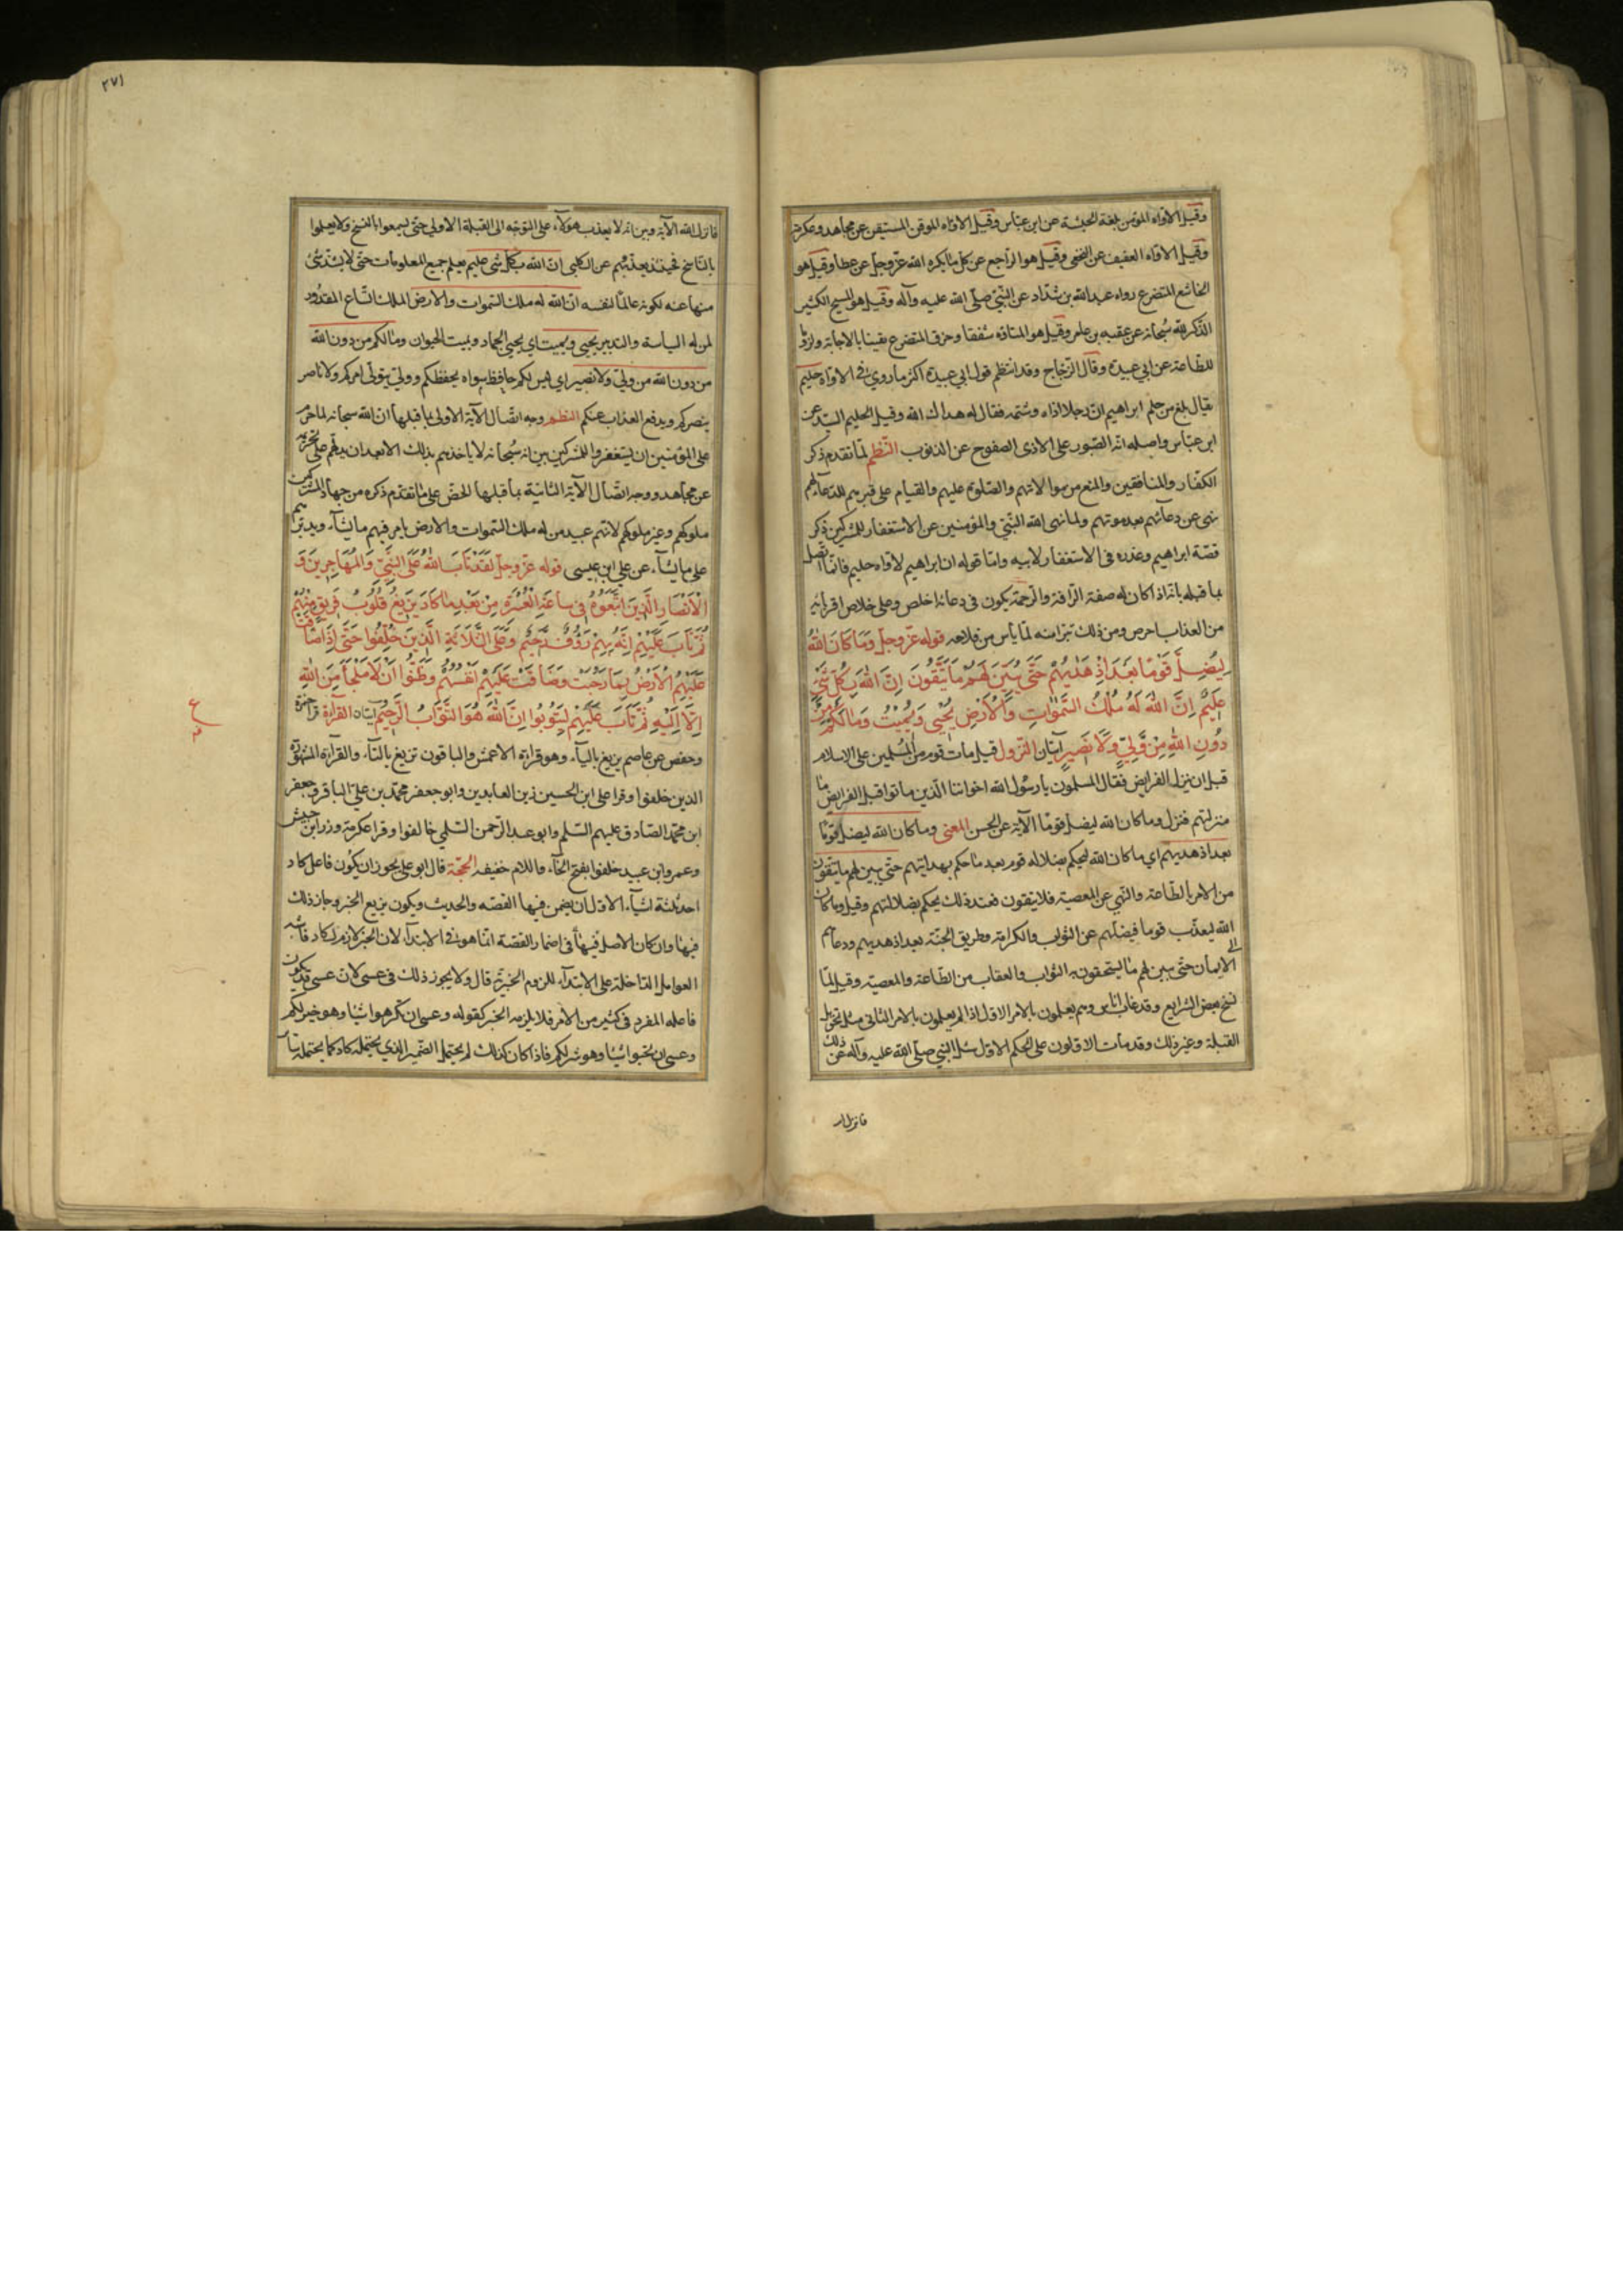 وقيل الاواه المؤمن بلغة الحبشة عن ابن عباس وقيل الاواه الموقن المستيقن عن مجاهد وعكرمة
وقيل الاواه العفيف عن النخعي وقيل هو الراجع عن كل ما يكره الله عز وجل عن عطا وقيل هو
الخاشع المتضرع رواه عبد الله بن شداد عن النبي صلى الله عليه وآله وقيل هو المسبح الكثير
الذكر لله سبحانه عن عقبه بن عامر وقيل هو المتاوه شفقا وفرقا المتضرع يقينا بالاجابة ولزوما
للطاعة عن ابي عبيدة وقال الزجاج وقد انتظم قول ابي عبيدة اكثر ما روي في الاواه حليم
يقال بلغ من حلم ابراهيم ان رجلا اذاه وشتمه فقال له هداك الله وقيل الحليم السيد عن
ابن عباس واصله انه الصبور على الاذى الصفوح عن الذنوب النظم لما تقدم ذكر
الكفار والمنافقين والمنع من موالاتهم والصلوة عليهم والقيام على قبرهم للدعاء لهم
نهى عن دعائهم بعد موتهم ولما نهى الله النبي والمؤمنين عن الاستغفار للمشركين ذكر
قصة ابراهيم وعذره في الاستغفار لابيه واما قوله ان ابراهيم لاواه حليم فانما اتصل
بما قبله بانه اذا كان له صفة الرافة والرحمة يكون في دعائه اخلص وعلى خلاص اقربائه
من العذاب احرص ومن ذلك تبرا منه لما يأس من فلاحه قوله عز وجل وَمَا كَانَ اللهُ
لِيُضِلَّ قَوْمًا بَعْدَ اِذْ هَدٰيهُمْ حَتّٰى يُبَيِّنَ لَهُمْ مَا يَتَّقُونَ اِنَّ اللهَ بِكُلِّ شَيْءٍ
عَلِيمٌ اِنَّ اللهَ لَهُ مُلْكُ السَّمٰوَاتِ وَالْاَرْضِ يُحْيِي وَيُمِيتُ وَمَا لَكُمْ مِنْ
دُونِ اللهِ مِنْ وَلِيٍّ وَلَا نَصِيرٍ آيتان النزول قيل مات قوم من المسلمين على الاسلام
قبل ان ينزل الفرايض فقال المسلمون يا رسول الله اخواننا الذين ماتوا قبل الفرايض ما
منزلتهم فنزل وما كان الله ليضل قوما الآية عن الحسن المعنى وما كان الله ليضل قوما
بعد اذ هديهم اي ما كان الله ليحكم بضلاله قوم بعد ما حكم بهدايتهم حتى يبين لهم ما يتقون
من الامر بالطاعة والنهي عن المعصية فلا يتقون فعند ذلك يحكم بضلالتهم وقيل وما كان
الله ليعذب قوما فيضلهم عن الثواب والكرامة وطريق الجنة بعد اذ هديهم ودعاهم الى
الايمان حتى يبين لهم ما يستحقون به الثواب والعقاب من الطاعة والمعصية وقيل لما
نسخ بعض الشرايع وقد غاب اناس وهم يعملون بالامر الاول اذا لم يعلمون بالامر الثاني مثل تحويل
القبلة وغير ذلك وقد مات الاولون على الحكم الاول سئل النبي صلى الله عليه وآله عن ذلك
فانزل الله
٢٧١
فانزل الله الآية وبين انه لا يعذب هؤلاء على التوجه الى القبلة الاولى حتى يسمعوا بالنسخ ولا يعملوا
بالناسخ فحينئذ يعذبهم عن الكلبي ان الله بكل شي عليم يعلم جميع المعلومات حتى لا يشذ شئ
منها عنه لكونه عالما لنفسه ان الله له ملك السموات والارض الملك اتساع المقدور
لمن له السياسة والتدبير يحيي ويميت اي يحيي الجماد ويميت الحيوان وما لكم من دون الله
من دون الله من ولي ولا نصير اي ليس لكم حافظ سواه يحفظكم وولي يتولى امركم ولا ناصر
ينصركم ويدفع العذاب عنكم النظم وجه اتصال الآية الاولى بما قبلها ان الله سبحانه لما حرم
على المؤمنين ان يستغفروا للمشركين بين انه سبحانه لا ياخذهم بذلك الا بعد ان يدلهم على تحريمه
عن مجاهد ووجه اتصال الآية الثانية بما قبلها الحض على ما تقدم ذكره من جهاد المشركين
ملوكهم وغير ملوكهم لانهم عبيد من له ملك السموات والارض يامر فيهم ما يشاء ويدبرهم
على ما يشاء عن علي ابن عيسى قوله عز وجل لَقَدْ تَابَ اللهُ عَلَى النَّبِيِّ وَالْمُهَاجِرِينَ وَ
الْاَنْصَارِ الَّذِينَ اتَّبَعُوهُ فِي سَاعَةِ الْعُسْرَةِ مِنْ بَعْدِ مَا كَادَ يَزِيغُ قُلُوبُ فَرِيقٍ مِنْهُمْ
ثُمَّ تَابَ عَلَيْهِمْ اِنَّهُ بِهِمْ رَؤُفٌ رَحِيمٌ وَعَلَى الثَّلَاثَةِ الَّذِينَ خُلِّفُوا حَتّٰى اِذَا ضَاقَتْ
عَلَيْهِمُ الْاَرْضُ بِمَا رَحُبَتْ وَضَاقَتْ عَلَيْهِمْ اَنْفُسُهُمْ وَظَنُّوا اَنْ لَا مَلْجَأَ مِنَ اللهِ
اِلَّا اِلَيْهِ ثُمَّ تَابَ عَلَيْهِمْ لِيَتُوبُوا اِنَّ اللهَ هُوَ التَّوَّابُ الرَّحِيمُ آيتان القراءة قرا حمزة
وحفص عن عاصم يزيغ بالياء وهو قراءة الاعمش والباقون تزيغ بالتاء والقراءة المشهورة
الذين خلفوا وقرا علي ابن الحسين زين العابدين وابو جعفر محمد بن علي الباقر وجعفر
ابن محمد الصادق عليهم السلم وابو عبد الرحمن السلمي خالفوا وقرا عكرمة وزر ابن حبيش
وعمرو ابن عبيد خلفوا بفتح الخاء واللام خفيفه الحجة قال ابو علي يجوز ان يكون فاعل كاد
احد ثلثة اشياء الاول ان يضمن فيها القصه والحديث ويكون يزيغ الخبر وجاز ذلك
فيها وان كان الاصل فيها في اضمار القصة انما هو في الابتداء لان الخبر لازم لكاد فاشبه
العوامل الداخلة على الابتداء للزوم الخبر قال ولا يجوز ذلك في عسى لان عسى قد يكون
فاعله المفرد في كثير من الامر فلا يلزمه الخبر كقوله وعسى ان تكرهوا شيئا وهو خير لكم
وعسى ان تحبوا شيئا وهو شر لكم فاذا كان كذلك لم يحتمل الضمير الذي يحتمله كاد كما يحتمله سائر